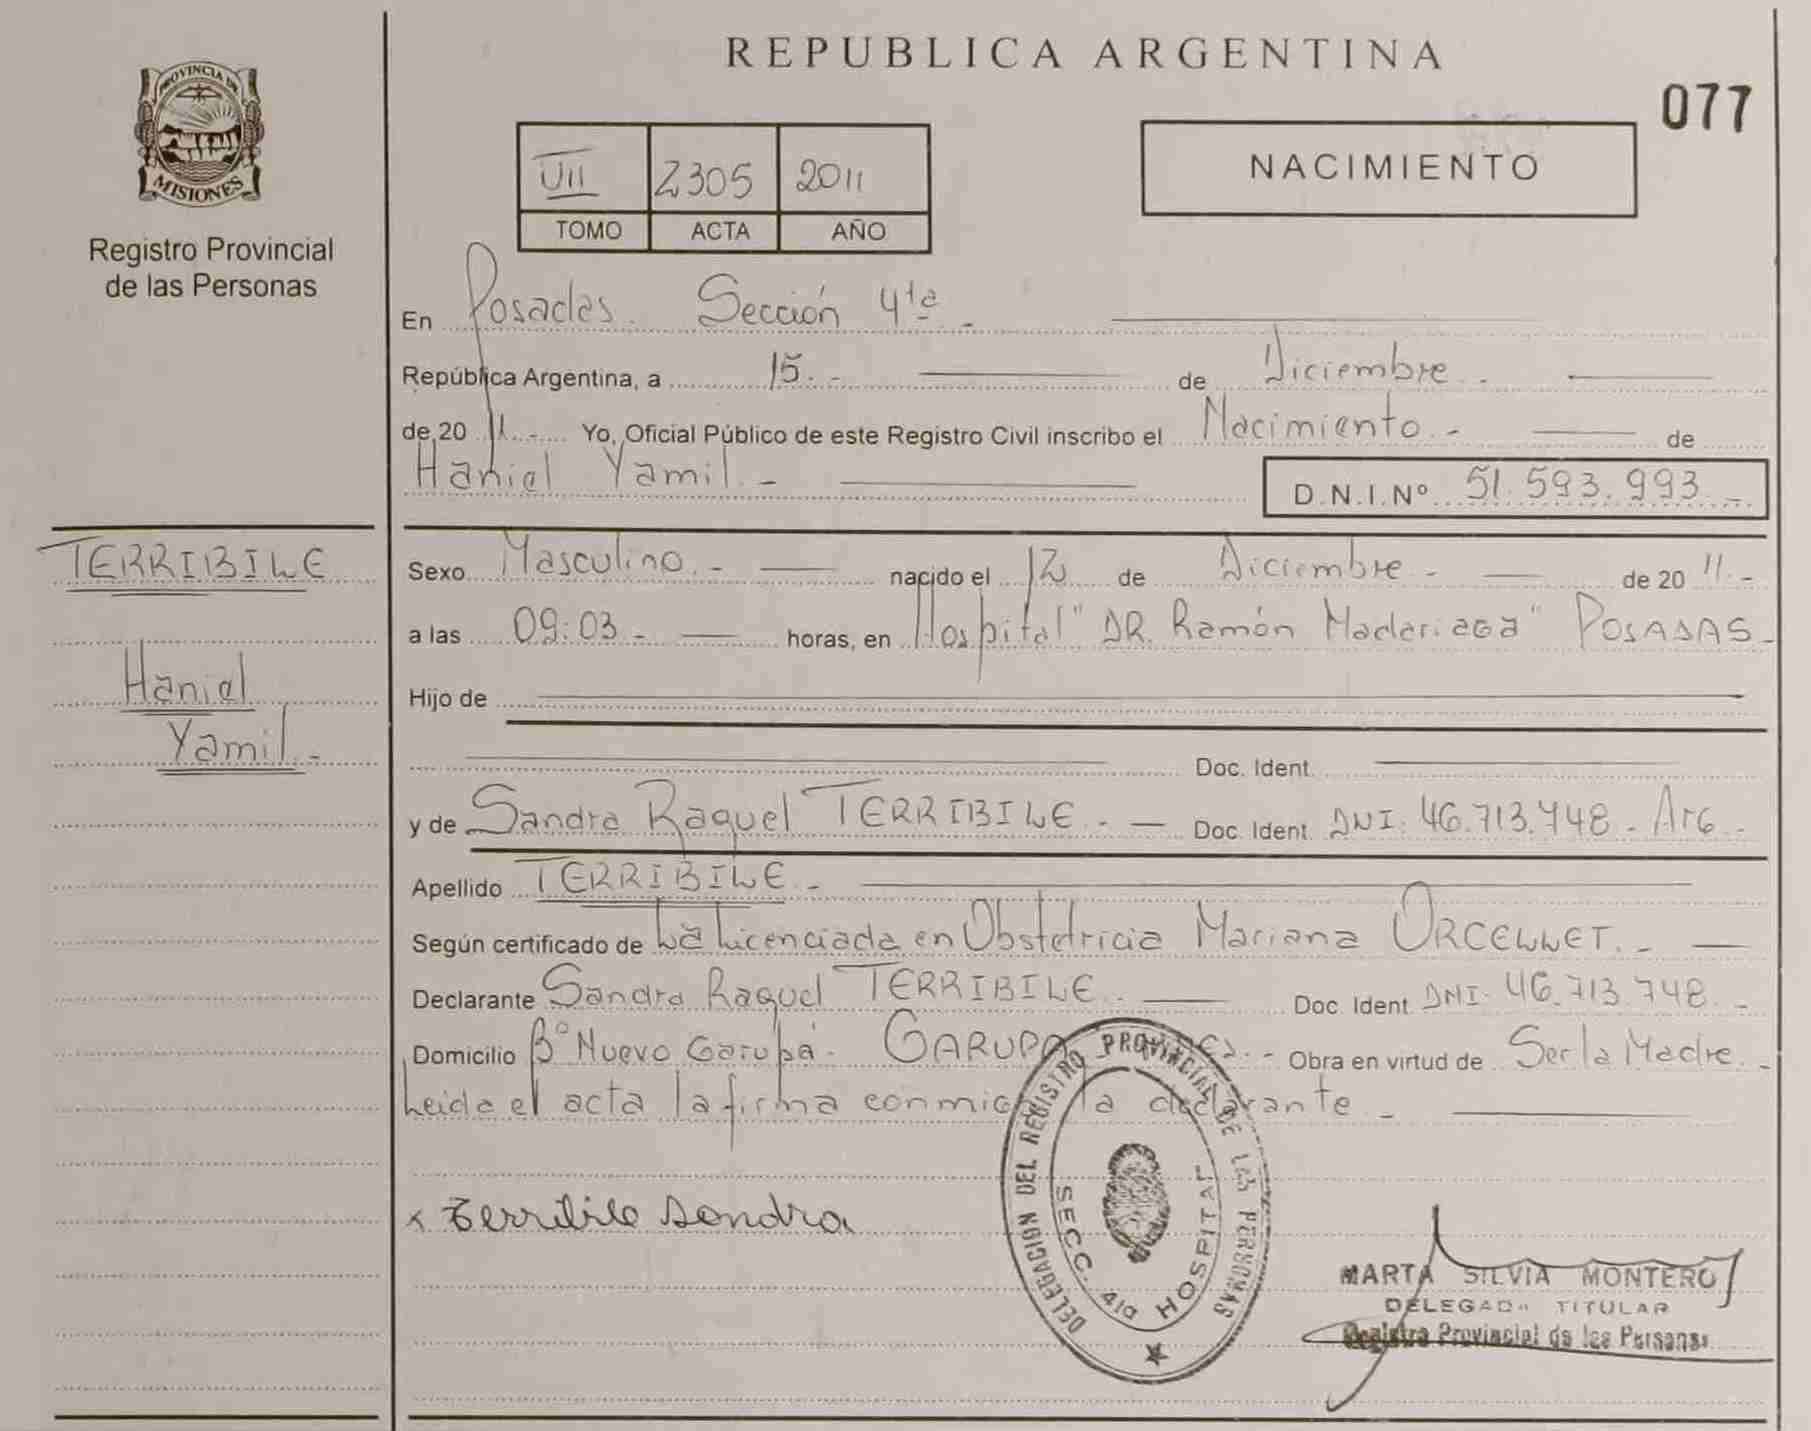 REPUBLICA ARGENTINA
077
PROVINCIA DE
MISIONES
Registro Provincial
de las Personas
VII 2305 2011
TOMO ACTA AÑO
NACIMIENTO
En Posadas. Sección 4ta -
República Argentina, a 15. - de Diciembre. -
de 20 11. - Yo, Oficial Público de este Registro Civil inscribo el Nacimiento. - de
Haniel Yamil. - D.N.I.Nº 51.593.993 -
TERRIBILE
Haniel
Yamil. -
Sexo Masculino. - nacido el 12 de Diciembre - de 20 11. -
a las 09:03 - horas, en Hospital "DR. Ramón Madariaga" POSADAS -
Hijo de
Doc. Ident.
y de Sandra Raquel TERRIBILE. - Doc. Ident. DNI: 46.713.748 - Arg. -
Apellido TERRIBILE. -
Según certificado de La Licenciada en Obstetricia Mariana ORCELLET. -
Declarante Sandra Raquel TERRIBILE. Doc. Ident. DNI: 46.713.748. -
Domicilio Bº Nuevo Garupá. GARUPA - Obra en virtud de Ser la Madre. -
Leida el acta la firma conmigo la declarante -
x Terribile Sandra
DELEGACION DEL REGISTRO PROVINCIAL DE LAS PERSONAS
SECC. 4ta HOSPITAL
MARTA SILVIA MONTERO
DELEGADA TITULAR
Registro Provincial de las Personas